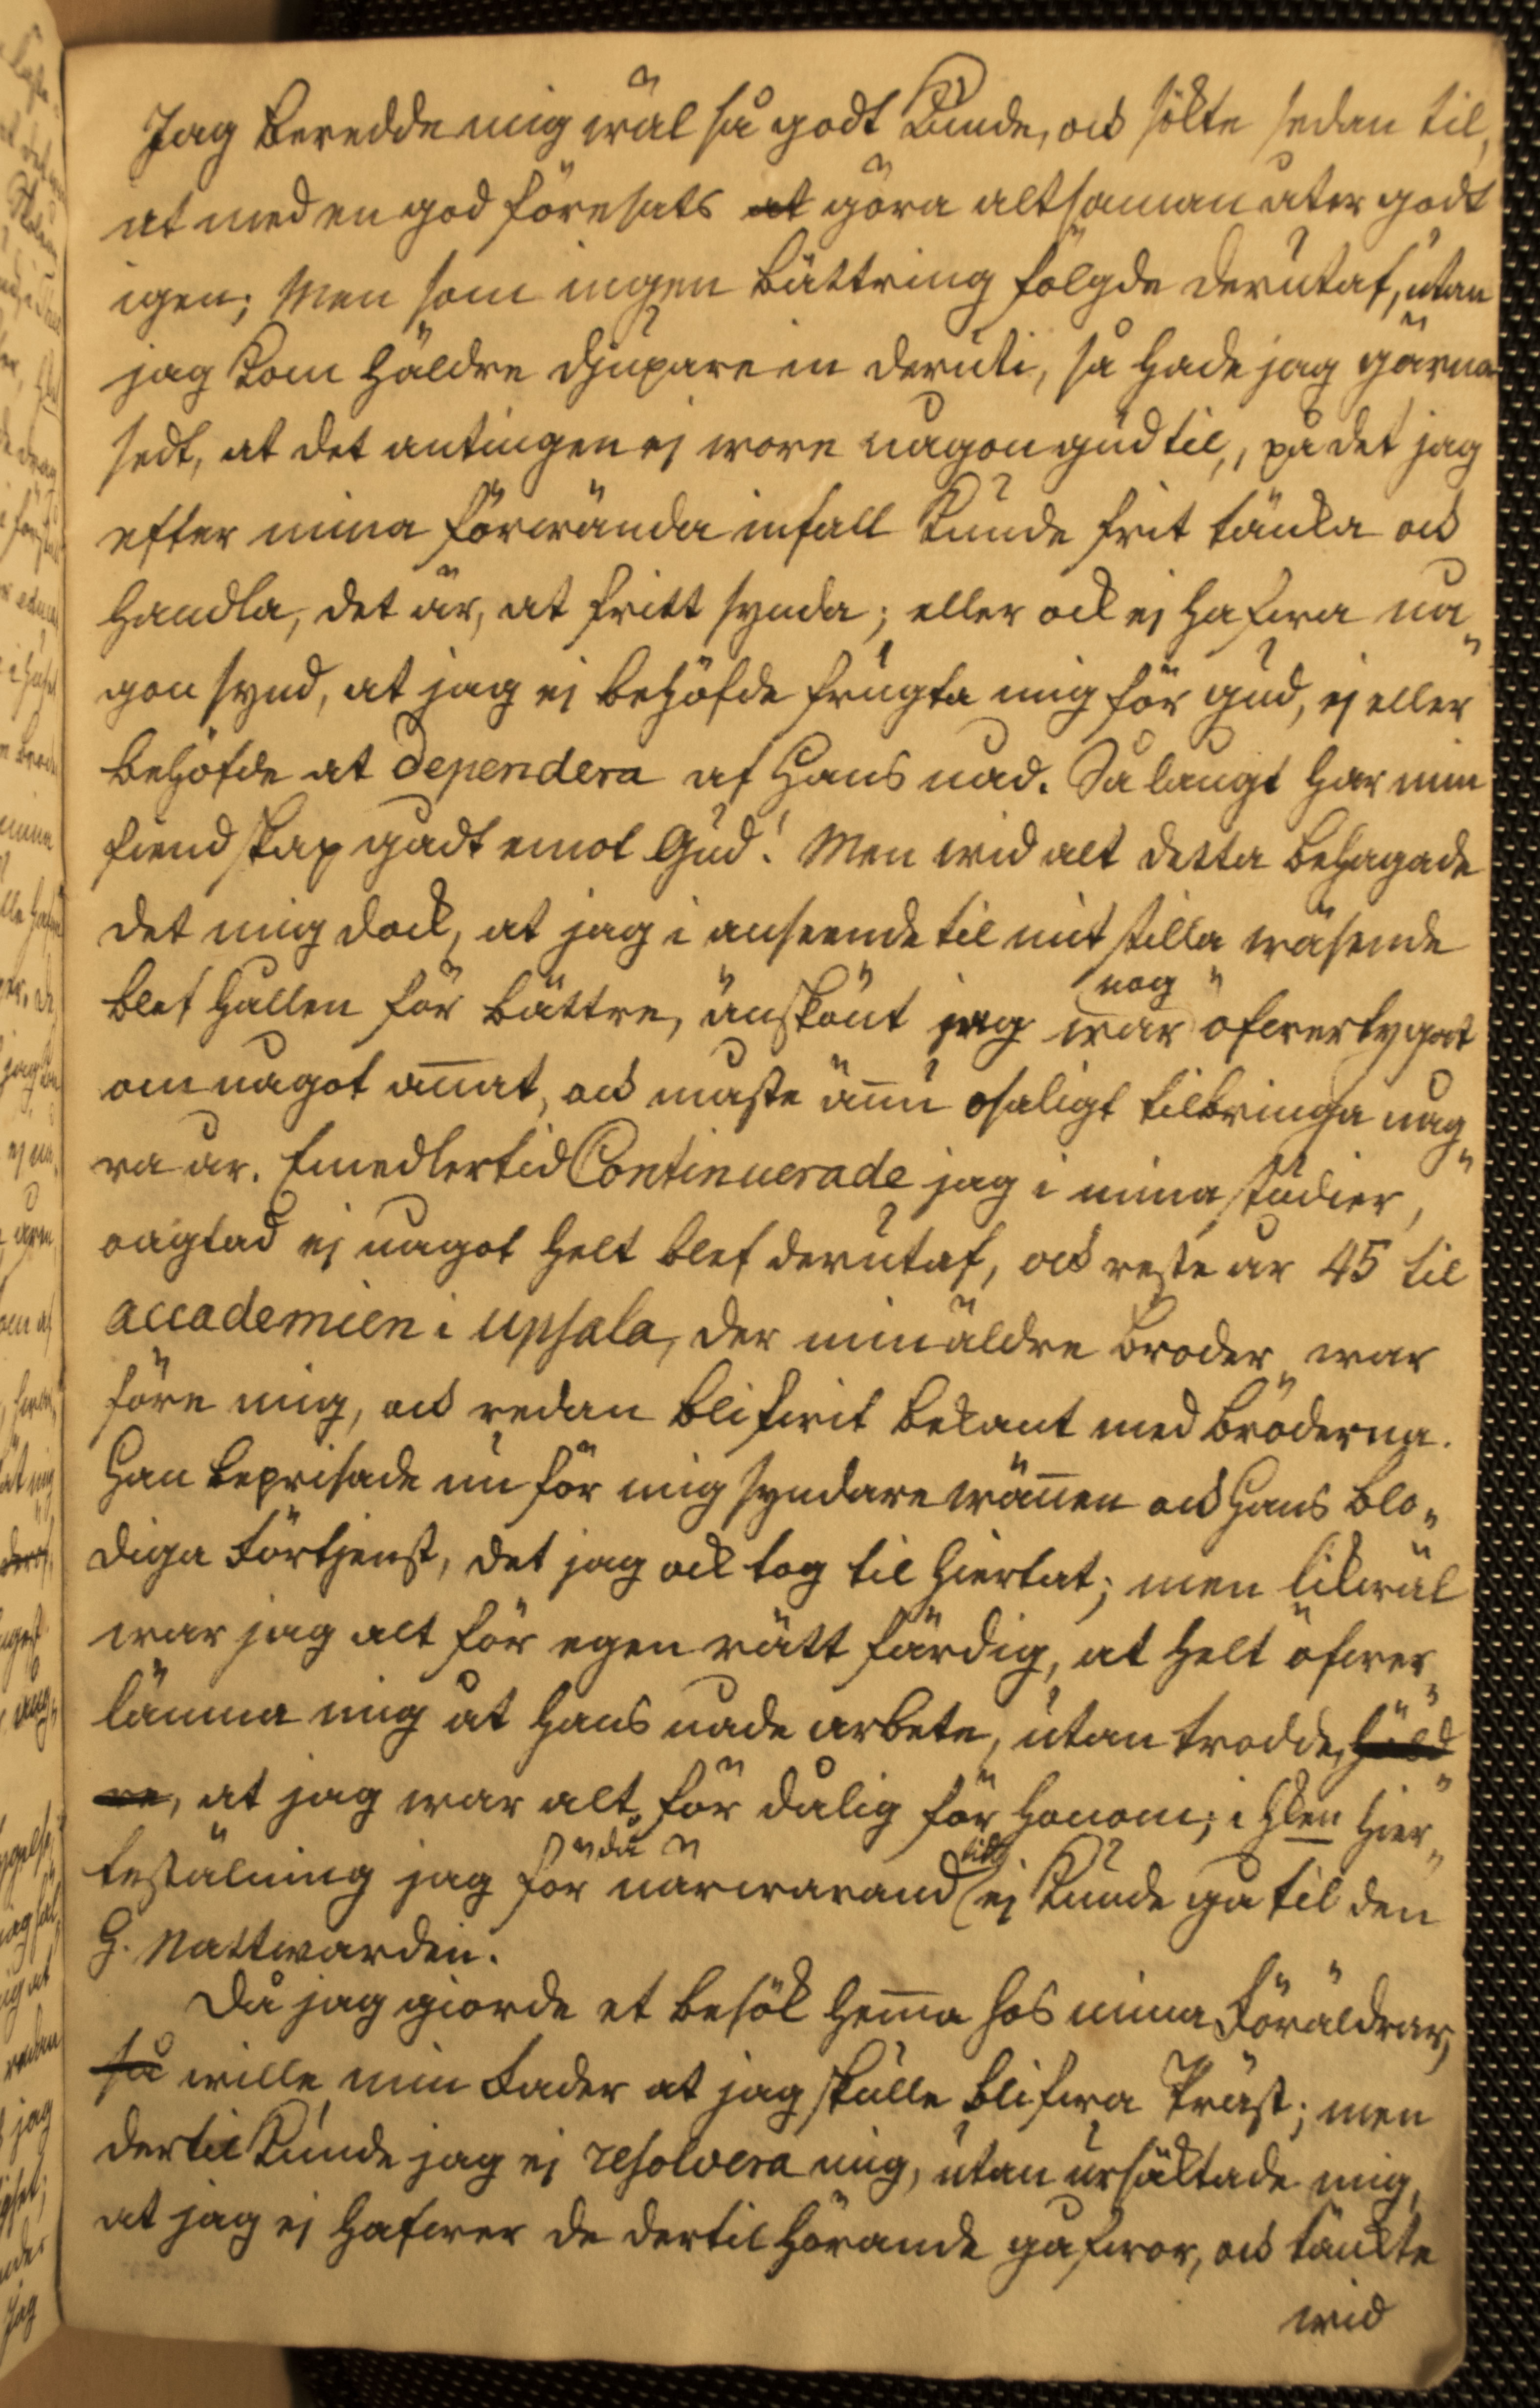 Jag beredde mig wäl så godt kunde, ock sökte sedan til,
at med en god föresats at göra altsamman åter godt
igen; Men som ingen bättring fölgde derutaf, utan
jag kom häldre djupare in deruti, så hade jag gärna
sedt, at det antingen ej wore någon gud til, på det jag
efter mina förwända infall kunde frit tänka ock
handla, det är, at fritt synda; eller ock ej hafwa nå„
gon synd, at jag ej behöfde frugta mig för gud, ej eller
behöfde at dependera af Hans nåd. Så långt har min
fiendskap gådt emot Gud! Men wid alt detta behagade
det mig dock, at jag i anseende til mit stilla wäsende
blef hållen för bättre, änskönt jag nog war öfwertygat
om något annat, ock måste ännu osaligt tilbringa någ„
ra år. Emedlertid Continuerade jag i mina studier,
oagtad ej något helt blef derutaf, ock reste år 45 til
accademien i Upsala, der min äldre broder war
före mig, ock redan blifwit bekant med bröderna.
Han beprisade nu för mig syndarewännen ock Hans blo„
diga Förtjenst, det jag ock tog til hiertat; men likwäl
war jag alt för egenrättfärdig, at helt öfwer„
lämna mig åt Hans nåde arbete, utan trodde, häld„
re, at jag war alt för dålig för Honom; i hwilken hier„
testälning jag för närwarande ej kunde gå til den
H. Nattwarden.
Då jag giorde et besök hemma hos mina Föräldrar,
så wille min Fader at jag skulle blifwa Präst; men
dertil kunde jag ej resolvera mig, utan ursäktade mig,
at jag ej hafwer de dertil hörande gåfwor, ock tänkte
wid